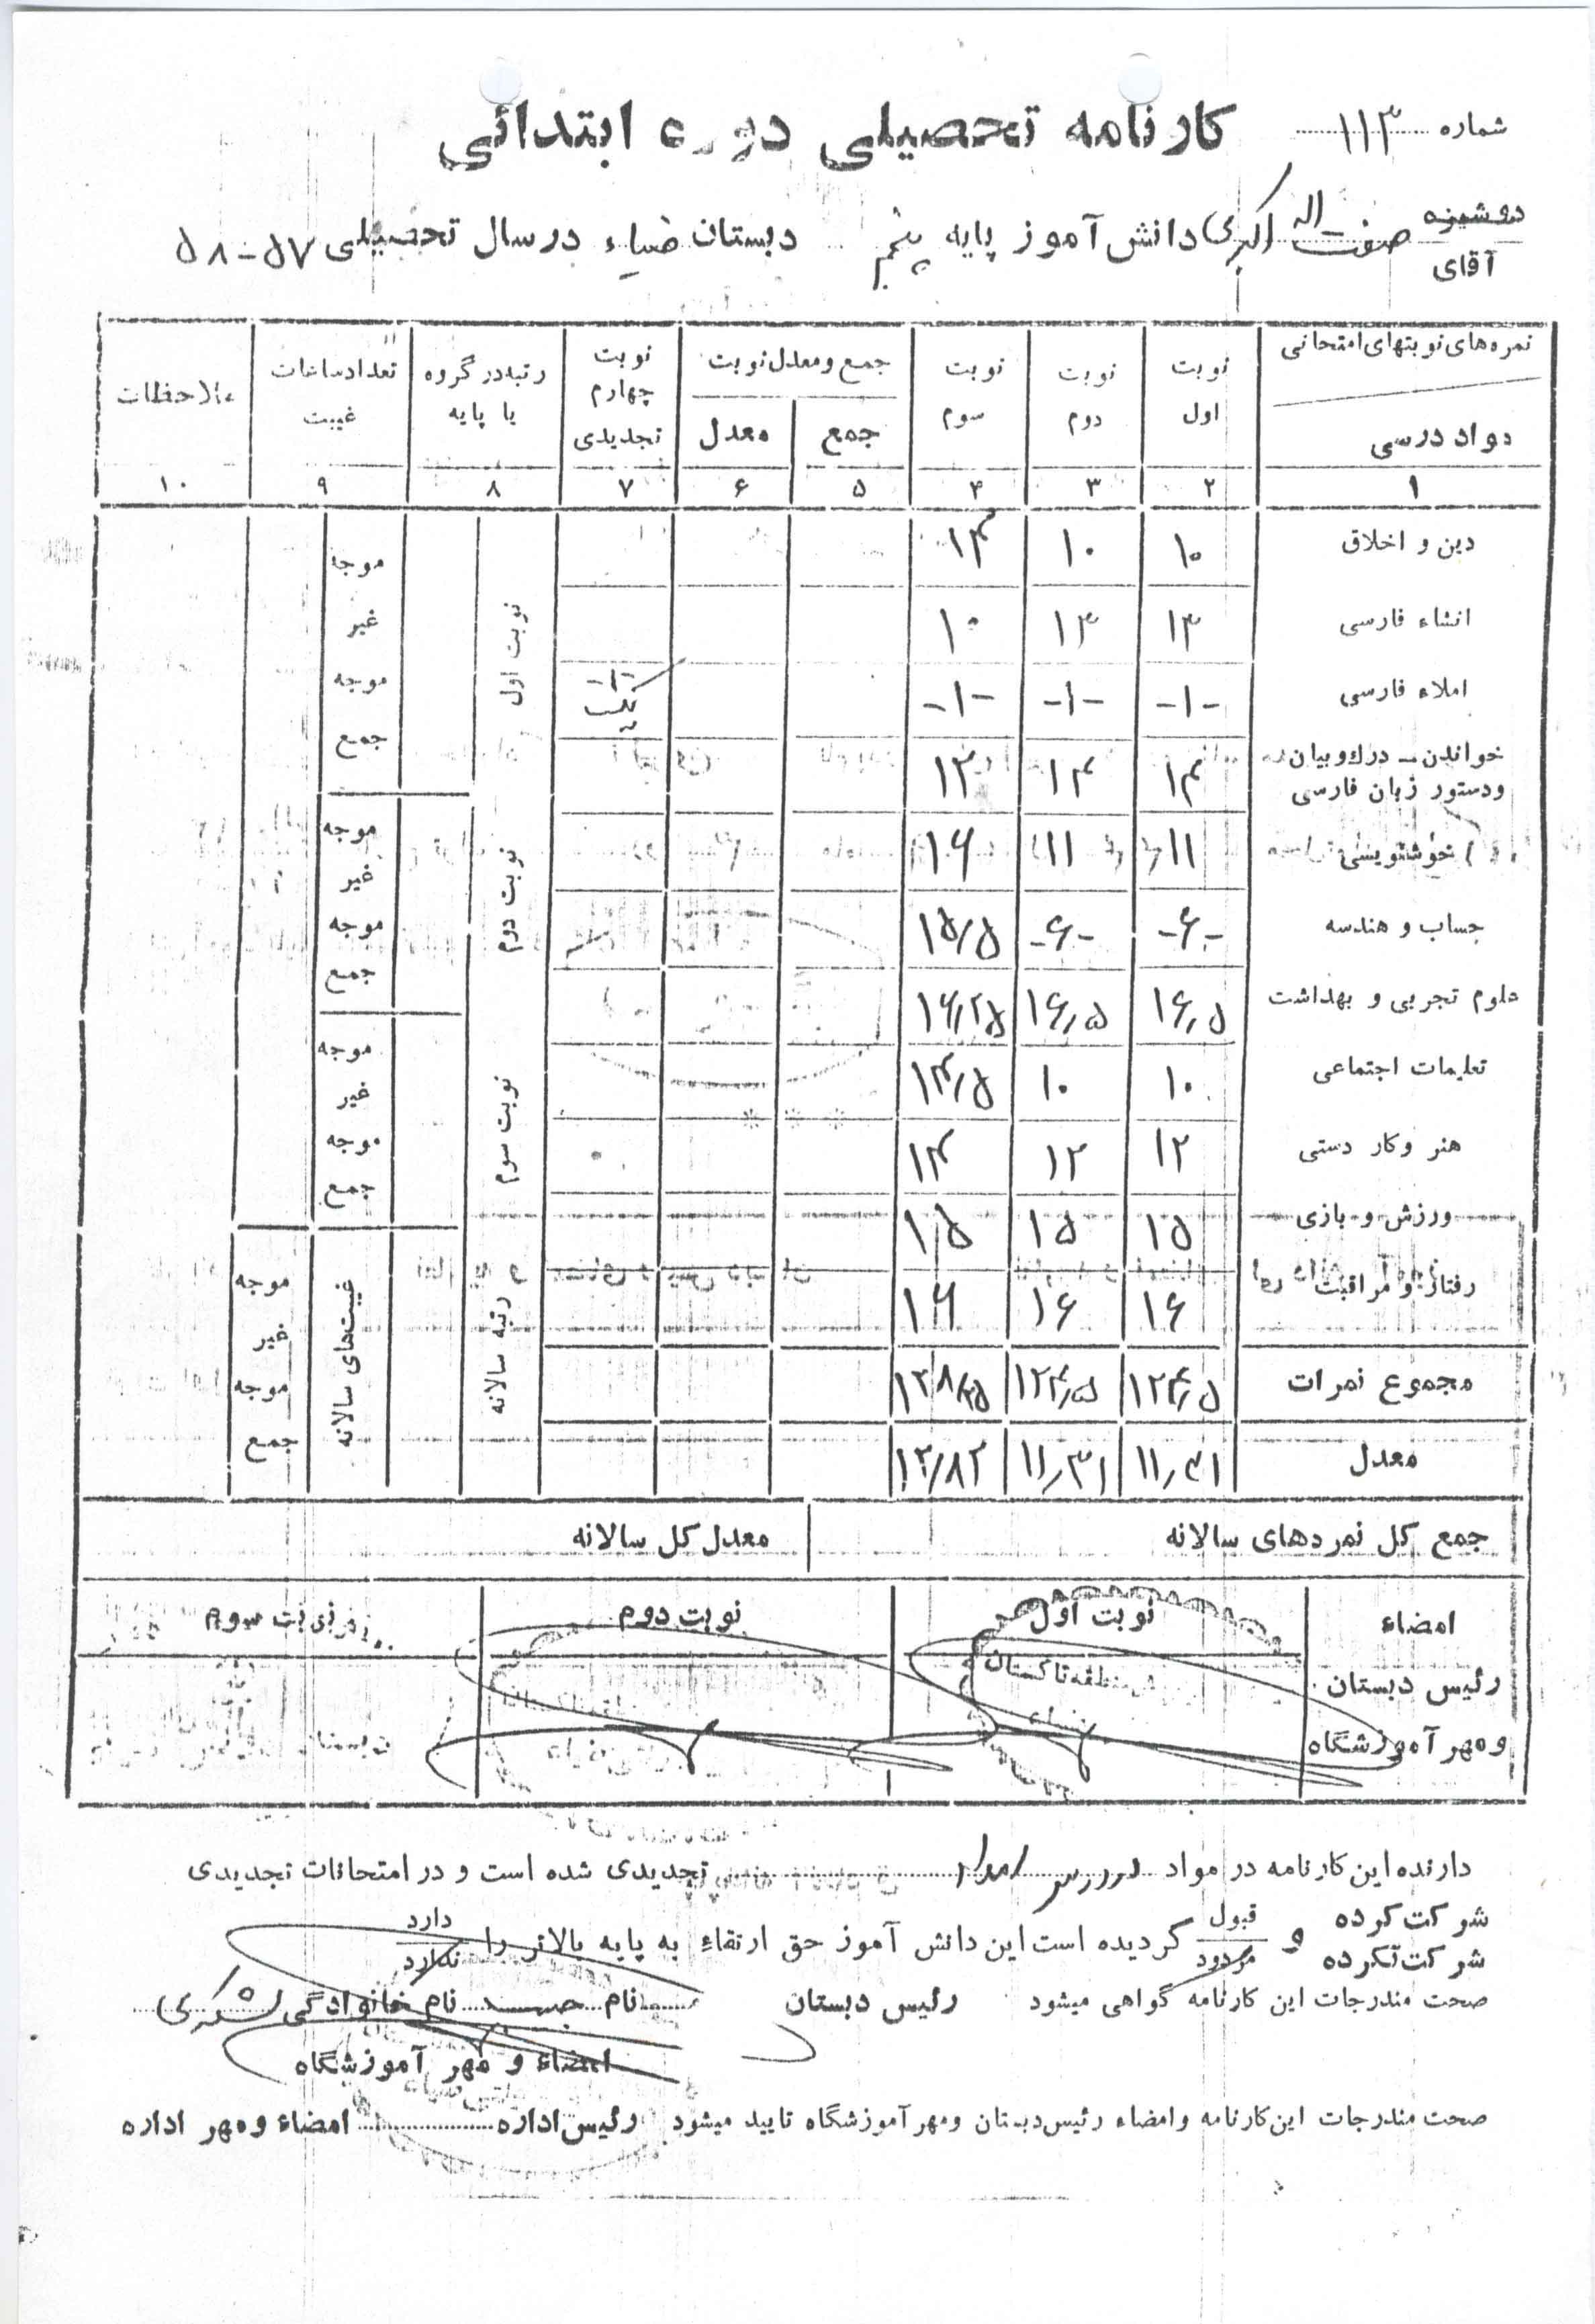 شماره ۱۱۳
کارنامه تحصیلی دوره ابتدائی
دوشیزه
آقای
صفت اله اکبری دانش آموز پایه پنجم دبستان ضیاء در سال تحصیلی ۵۷-۵۸
نمره‌های نوبتهای امتحانی
مواد درسی
نوبت اول
نوبت دوم
نوبت سوم
جمع و معدل نوبت
جمع
معدل
نوبت چهارم تجدیدی
رتبه در گروه یا پایه
تعداد ساعات غیبت
ملاحظات
۱ ۲ ۳ ۴ ۵ ۶ ۷ ۸ ۹ ۱۰
دین و اخلاق ۱۰ ۱۰ ۱۴
انشاء فارسی ۱۳ ۱۳ ۱۰
املاء فارسی -۱- -۱- -۱- -۱-
خواندن - درک و بیان و دستور زبان فارسی ۱۴ ۱۴ ۱۳
خوشنویسی ۱۱ ۱۱ ۱۶
حساب و هندسه -۶- -۶- ۱۵/۵
علوم تجربی و بهداشت ۱۶٫۵ ۱۶٫۵ ۱۶٫۲۵
تعلیمات اجتماعی ۱۰ ۱۰ ۱۳/۵
هنر و کار دستی ۱۲ ۱۲ ۱۴
ورزش و بازی ۱۵ ۱۵ ۱۵
رفتار و مراقبت ۱۶ ۱۶ ۱۶
مجموع نمرات ۱۲۴٫۵ ۱۲۴٫۵
معدل ۱۱٫۳۱ ۱۱٫۳۱ ۱۲/۸۲
نوبت اول
موجه
غیر موجه
جمع
نوبت دوم
موجه
غیر موجه
جمع
نوبت سوم
موجه
غیر موجه
جمع
رتبه سالانه
غیبت‌های سالانه
موجه
غیر موجه
جمع
جمع کل نمره‌های سالانه
معدل کل سالانه
امضاء
رئیس دبستان
و مهر آموزشگاه
نوبت اول
نوبت دوم
نوبت سوم
منطقه تاکستان
دارنده این کارنامه در مواد املاء تجدیدی شده است و در امتحانات تجدیدی
شرکت کرده
شرکت نکرده
و
قبول
مردود
گردیده است این دانش آموز حق ارتقاء به پایه بالاتر را
دارد
ندارد
صحت مندرجات این کارنامه گواهی میشود رئیس دبستان نام نام خانوادگی
امضاء و مهر آموزشگاه
صحت مندرجات این کارنامه و امضاء رئیس دبستان و مهر آموزشگاه تایید میشود رئیس اداره امضاء و مهر اداره